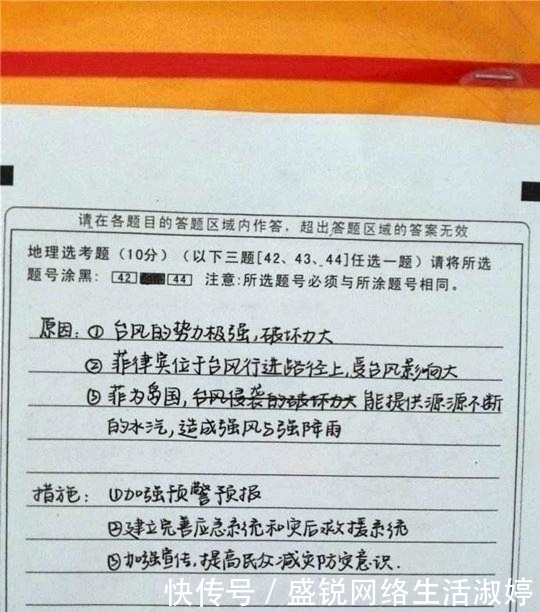 请在各题目的答题区域内作答，超出答题区域的答案无效
地理选考题（10分）（以下三题[42、43、44]任选一题）请将所选
题号涂黑： 42 44 注意:所选题号必须与所涂题号相同。
原因:① 台风的势力极强,破坏力大
② 菲律宾位于台风行进路径上,受台风影响大
③ 菲为岛国,台风侵袭的破坏力大 能提供源源不断
的水汽,造成强风与强降雨
措施: ①加强预警预报
②建立完善应急系统和灾后救援系统
③加强宣传,提高民众减灾防灾意识.
快传号 / 盛锐网络生活淑婷